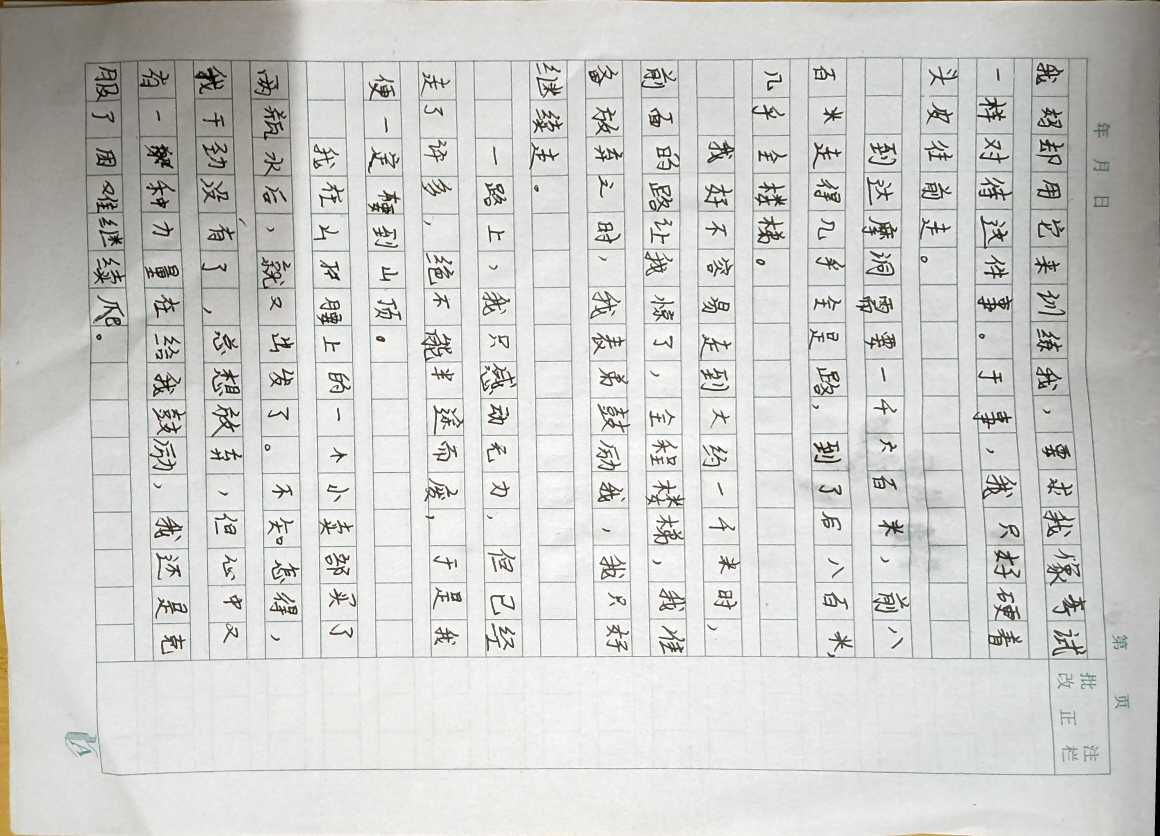 年 月 日
第 页
批 注
改 正 栏
我妈却用它来训练我，要求我像考试
一样对待这件事。于事，我只好硬着
头皮往前走。
到达摩洞需要一千六百米，前八
百米走得几乎全是路，到了后八百米，
几乎全楼梯。
我好不容易走到大约一千米时，
前面的路让我惊了，全程楼梯，我准
备放弃之时，我表弟鼓励我，我只好
继续走。
一路上，我只感动无力，但已经
走了许多，绝不能半途而废，于是我
便一定要到山顶。
我在山腰上的一个小卖部买了
两瓶水后，就又出发了。不知怎得，
我干劲没有了，总想放弃，但心中又
有一种力量在给我鼓励，我还是克
服了困难继续爬。